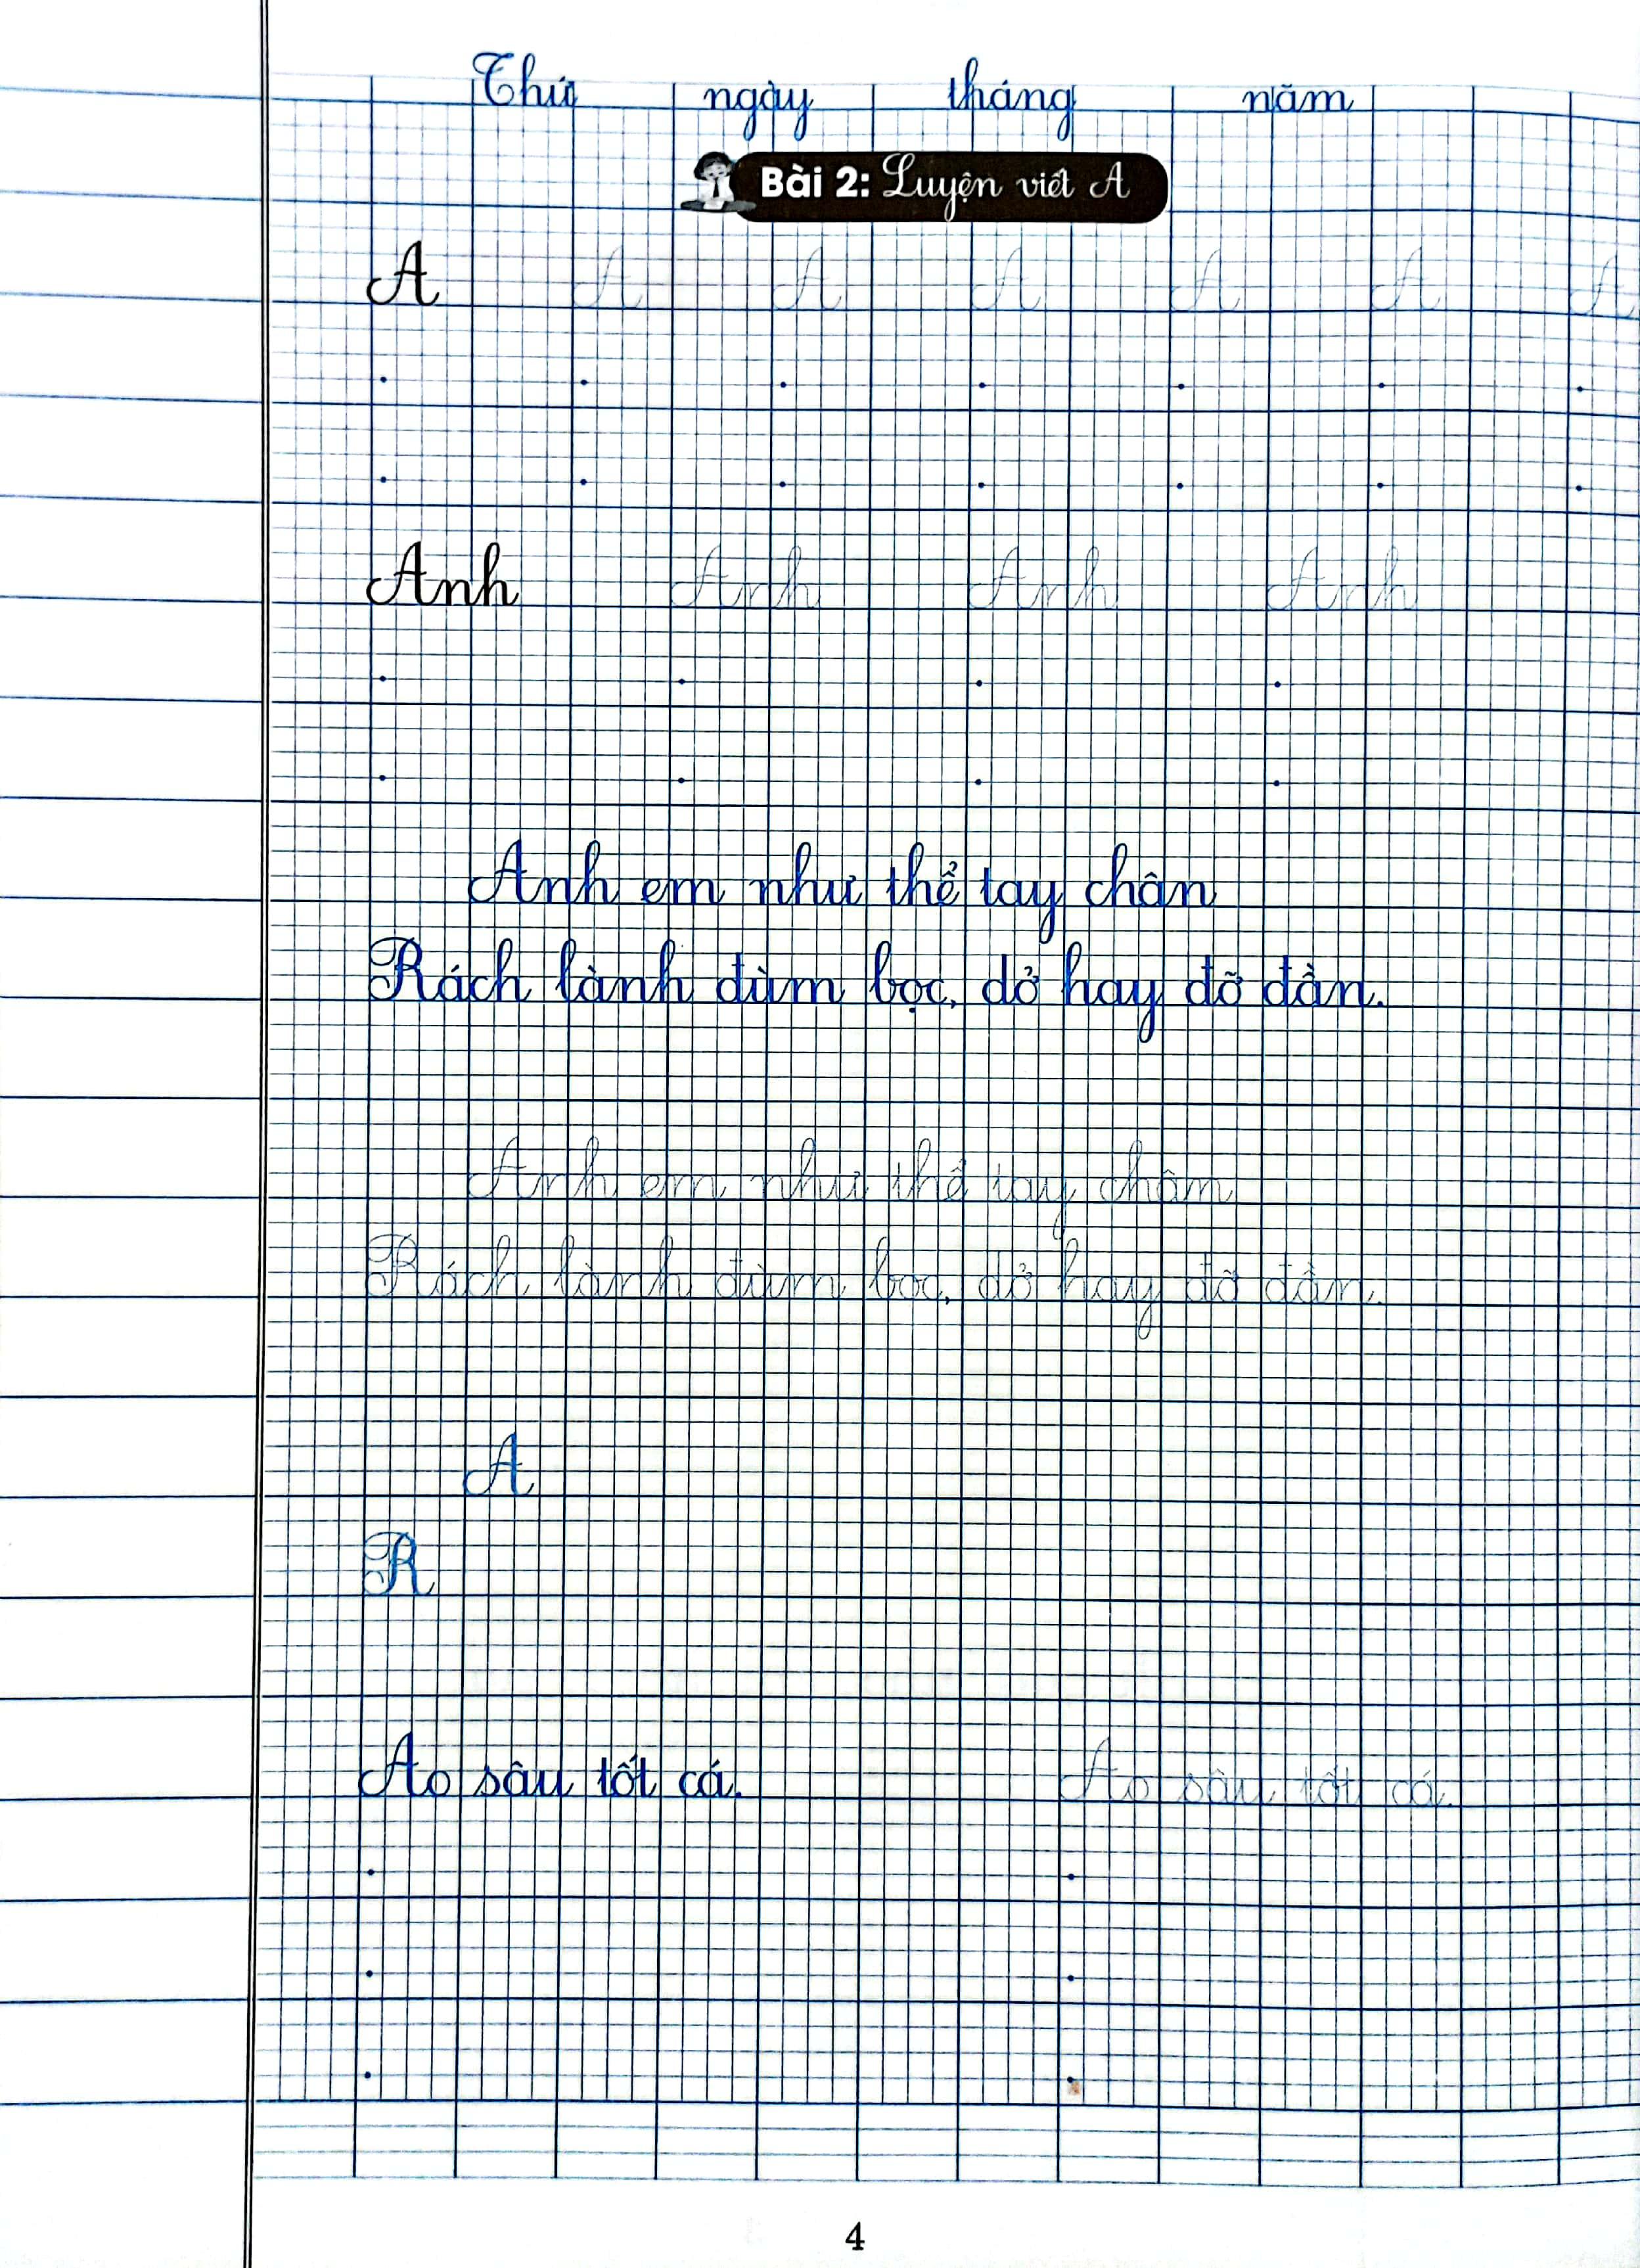 Thứ ngày tháng năm
Bài 2: Luyện viết A
A A A A A A A
Anh Anh Anh Anh
Anh em như thể tay chân
Rách lành đùm bọc, dở hay đỡ đần.
Anh em như thể tay châm
Rách lành đùm bọc, dở hay đỡ đần.
A
R
Ao sâu tốt cá. Ao sâu tốt cá.
4